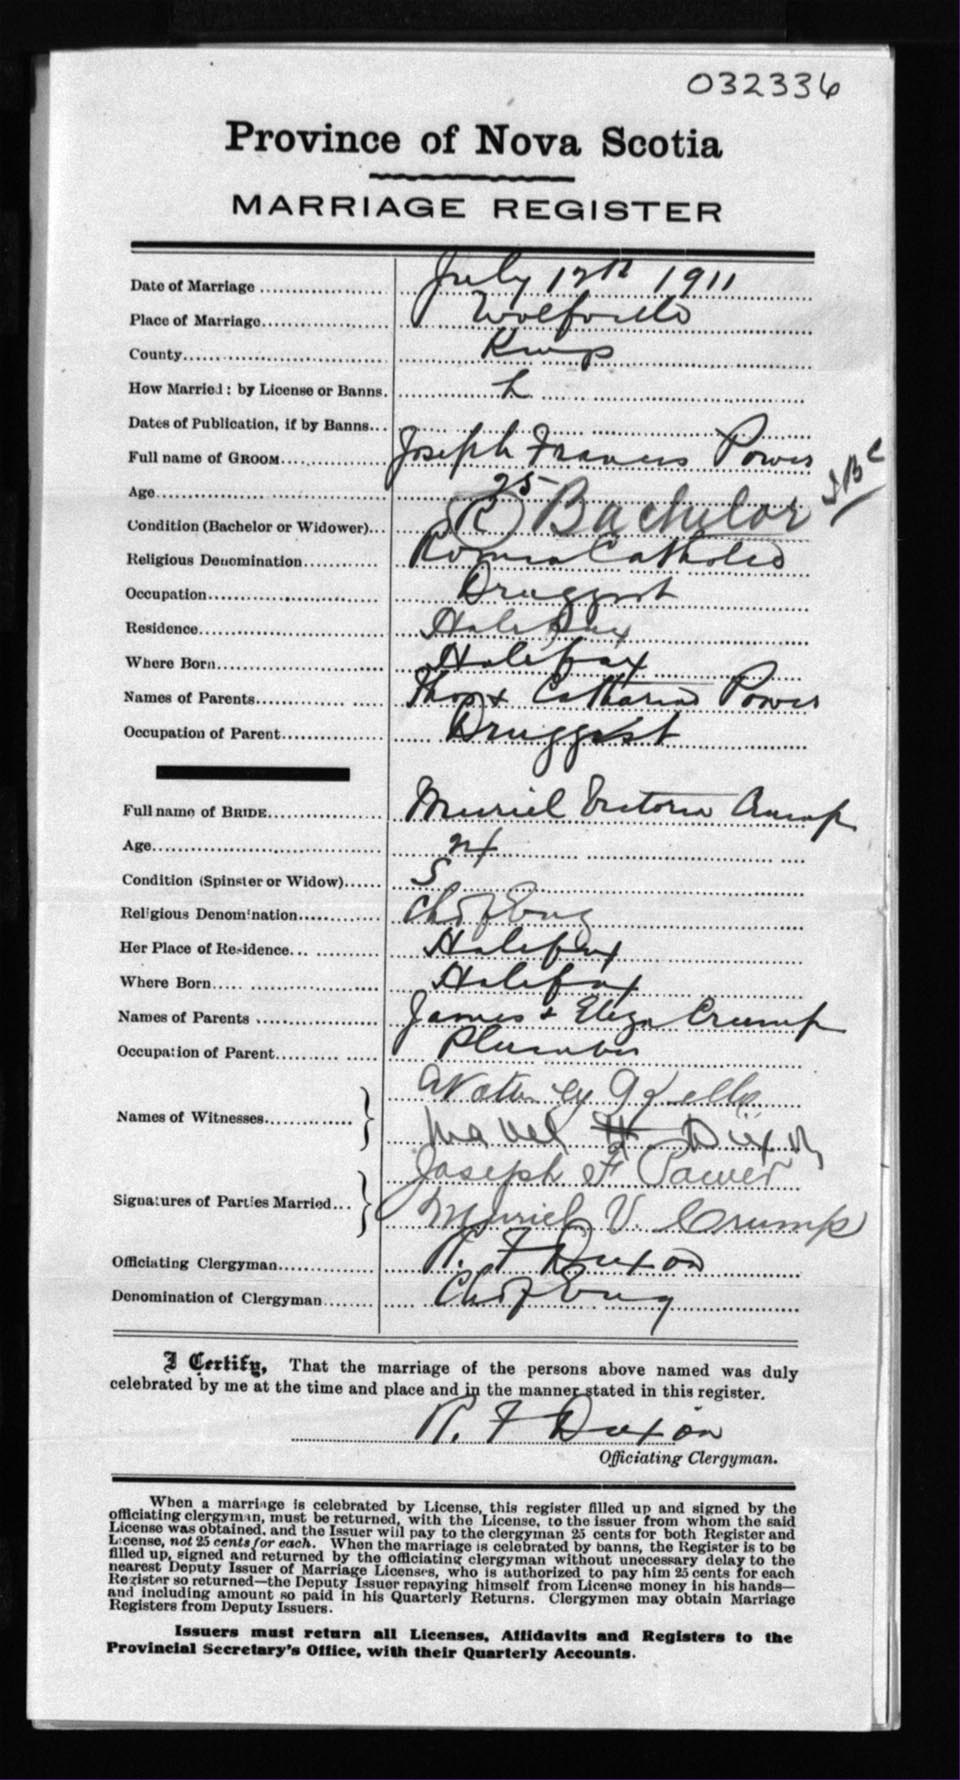 032336
Province of Nova Scotia
MARRIAGE REGISTER
Date of Marriage July 12th 1911
Place of Marriage Wolfville
County Kings
How Married: by License or Banns. L
Dates of Publication, if by Banns
Full name of GROOM Joseph Francis Power
Age 25
Condition (Bachelor or Widower) Bachelor
Religious Denomination Roman Catholic
Occupation Druggist
Residence Halifax
Where Born Halifax
Names of Parents Thos & Catharine Power
Occupation of Parent Druggist
Full name of BRIDE Muriel Victoria Crump
Age 24
Condition (Spinster or Widow) S
Religious Denomination Ch of Eng
Her Place of Residence Halifax
Where Born Halifax
Names of Parents James & Eliza Crump
Occupation of Parent Plumber
Names of Witnesses
Dixon
Signatures of Parties Married Joseph F Power
Muriel V. Crump
Officiating Clergyman R. F Dixon
Denomination of Clergyman Ch of Eng
I Certify, That the marriage of the persons above named was duly
celebrated by me at the time and place and in the manner stated in this register.
R. F Dixon
Officiating Clergyman.
When a marriage is celebrated by License, this register filled up and signed by the
officiating clergyman, must be returned, with the License, to the issuer from whom the said
License was obtained, and the Issuer will pay to the clergyman 25 cents for both Register and
License, not 25 cents for each. When the marriage is celebrated by banns, the Register is to be
filled up, signed and returned by the officiating clergyman without unnecessary delay to the
nearest Deputy Issuer of Marriage Licenses, who is authorized to pay him 25 cents for each
Register so returned—the Deputy Issuer repaying himself from License money in his hands—
and including amount so paid in his Quarterly Returns. Clergymen may obtain Marriage
Registers from Deputy Issuers.
Issuers must return all Licenses, Affidavits and Registers to the
Provincial Secretary's Office, with their Quarterly Accounts.